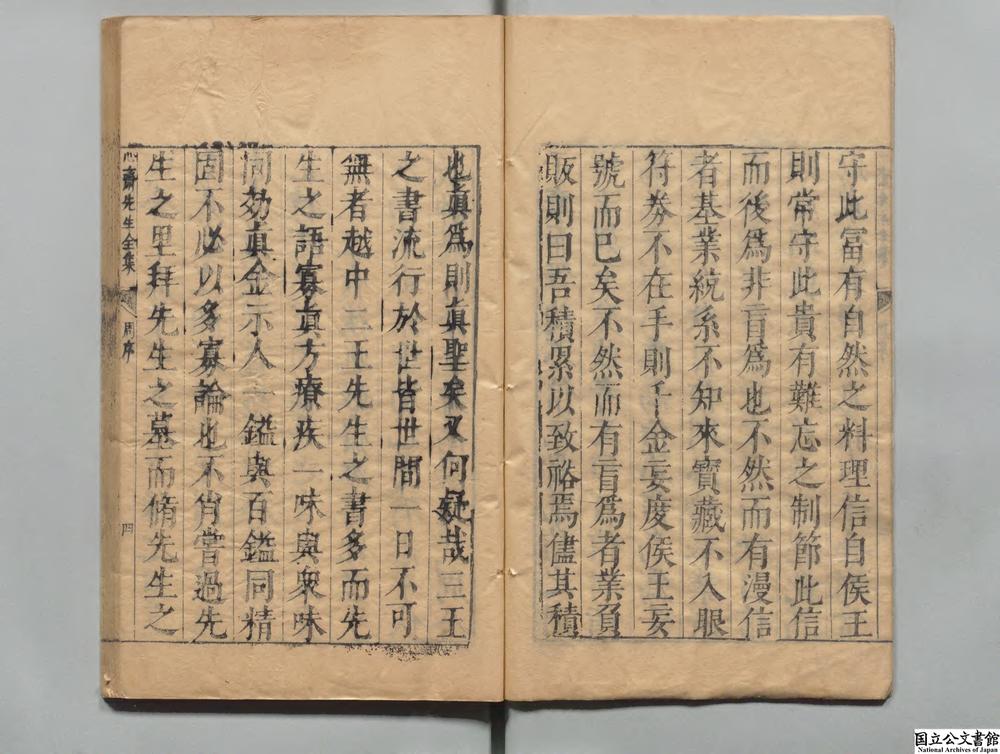 守此冨有自然之料理信自侯王
則常守此貴有難忘之制節此信
而後爲非盲爲也不然而有漫信
者基業統系不知來寶藏不入眼
符券不在手則千金妄度侯王妄
號而已矣不然而有盲爲者業負
販則曰吾積累以致裕焉儘其積
也眞爲則眞聖矣又何疑哉三王
之書流行於世皆世間一日不可
無者越中二王先生之書多而先
生之語寡眞方療疾一味與衆味
同効眞金示人一鎰與百鎰同精
固不必以多寡論也不肖嘗過先
生之里拜先生之墓而脩先生之
心齋先生全集
周序
四
国立公文書館
National Archives of Japan